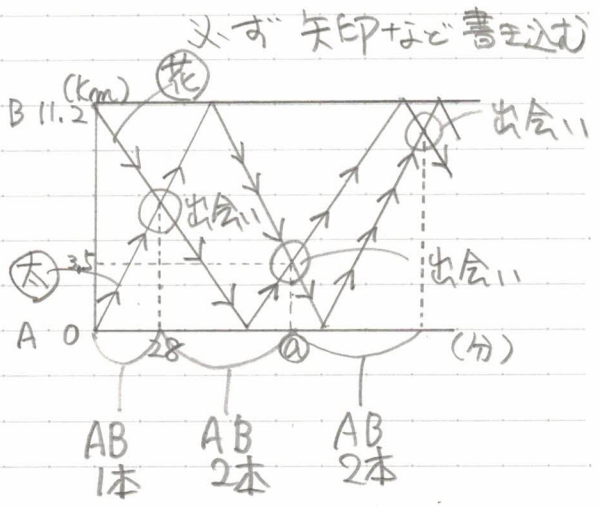 必ず 矢印など書き込む
(Km)
花
B 11.2
出会い
出会い
3.5
太
出会い
A 0
28
ⓐ
(分)
AB
1本
AB
2本
AB
2本